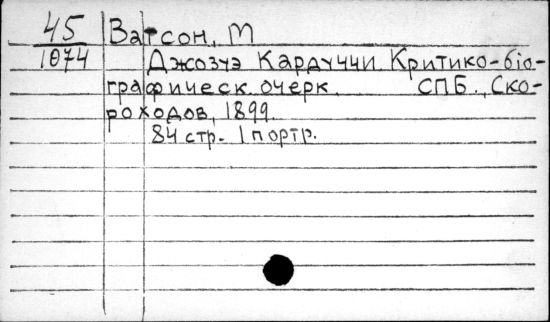 45 Ватсон, М
1074 Джозуэ Кардуччи Критико-біо-
графическ. очерк. СПБ., Ско-
роходов, 1899.
84 стр. 1 портр.